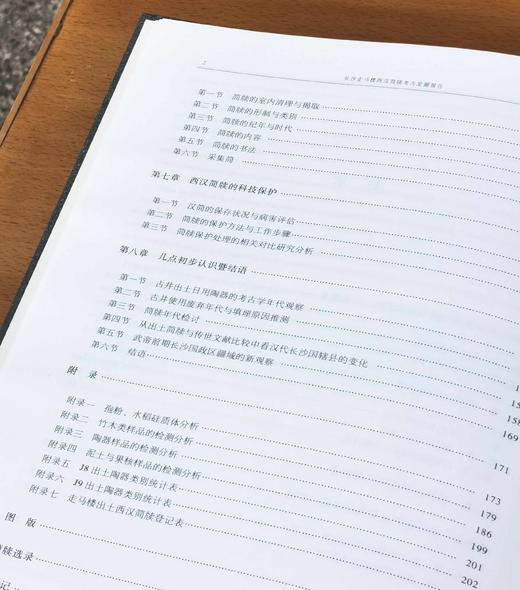 2 长沙走马楼西汉简牍考古发掘报告
第一节 简牍的室内清理与揭取
第二节 简牍的形制与类别
第三节 简牍的纪年与时代
第四节 简牍的内容
第五节 简牍的书法
第六节 采集简
第七章 西汉简牍的科技保护
第一节 汉简的保存状况与病害评估
第二节 简牍的保护方法与工作步骤
第三节 简牍保护处理的相关对比研究分析
第八章 几点初步认识暨结语
第一节 古井出土日用陶器的考古学年代观察
第二节 古井使用废弃年代与填埋原因推测
第三节 简牍年代检讨
第四节 从出土简牍与传世文献比较中看汉代长沙国辖县的变化
第五节 武帝前期长沙国政区疆域的新观察 158
第六节 结语 169
附 录 171
附录一 孢粉、水稻硅质体分析 173
附录二 竹木类样品的检测分析 179
附录三 陶器样品的检测分析 186
附录四 泥土与果核样品的检测分析 199
附录五 J8出土陶器类别统计表 201
附录六 J9出土陶器类别统计表 202
附录七 走马楼出土西汉简牍登记表
图 版
牍选录
记